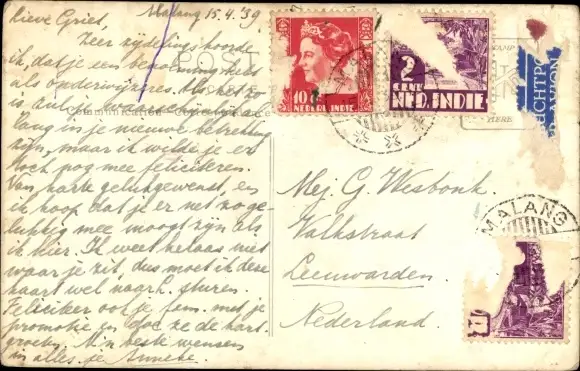 Malang 15.4.'39
Lieve Griet,
Zeer zijdelings hoorde
ik, dat je een benoeming hebt
als onderwijzeres. Als het zo
is zul je waarschijnlijk al
lang in je nieuwe betrekking
zijn, maar ik wilde je er
toch nog mee feliciteren.
Van harte gelukgewenst, en
ik hoop dat je er net zo ge-
lukkig mee moogt zijn als
ik hier. Ik weet helaas niet
waar je zit, dus moet ik deze
kaart wel naar L. sturen.
Feliciteer ook je fam. met je
promotie en doe ze de hart.
groeten. M'n beste wensen
in alles, je Annete.
POST
Communication
10
NEDERL. INDIE
2
CENT
NED. INDIE
STAMP
HERE
CHTPO
AVION
Mej. G. Westbonk.
Valkstraat
Leeuwarden.
Nederland.
MALANG